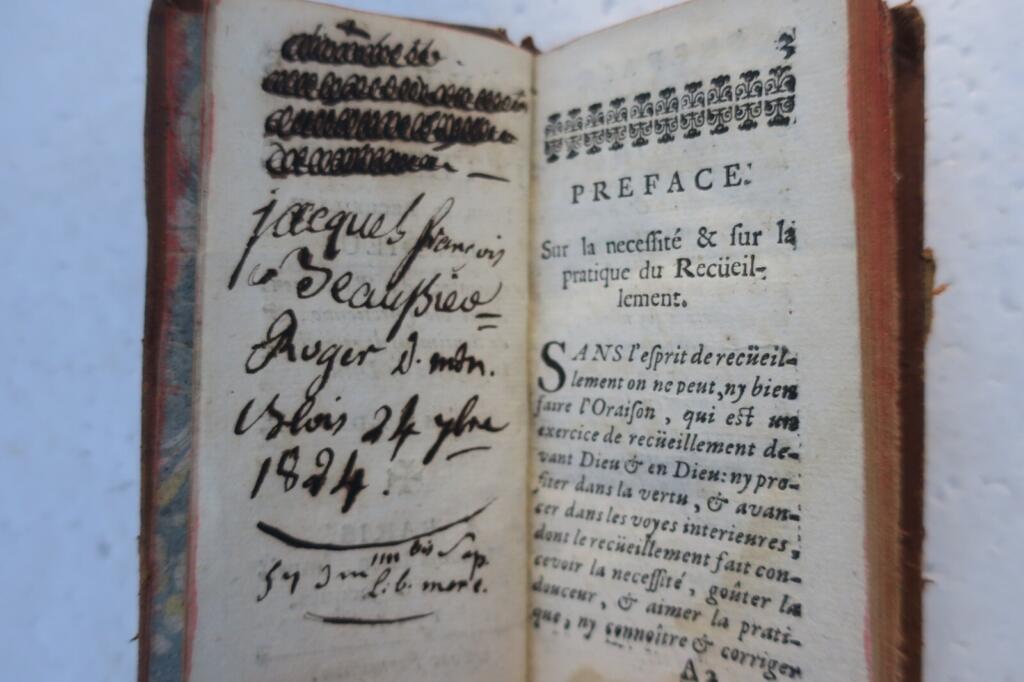 jacques françois
Beaussieo
Roger d. mon.
Blois 24 7bre
1824.
3
PREFACE.
Sur la necessité & sur la
pratique du Recüeil-
lement.
SANS l'esprit de recüeil-
lement on ne peut, ny bien
faire l'Oraison, qui est un
exercice de recüeillement de-
vant Dieu & en Dieu: ny pro-
fiter dans la vertu, & avan-
cer dans les voyes interieures,
dont le recüeillement fait con-
cevoir la necessité, goûter la
douceur, & aimer la prati-
que, ny connoître & corriger
A 2